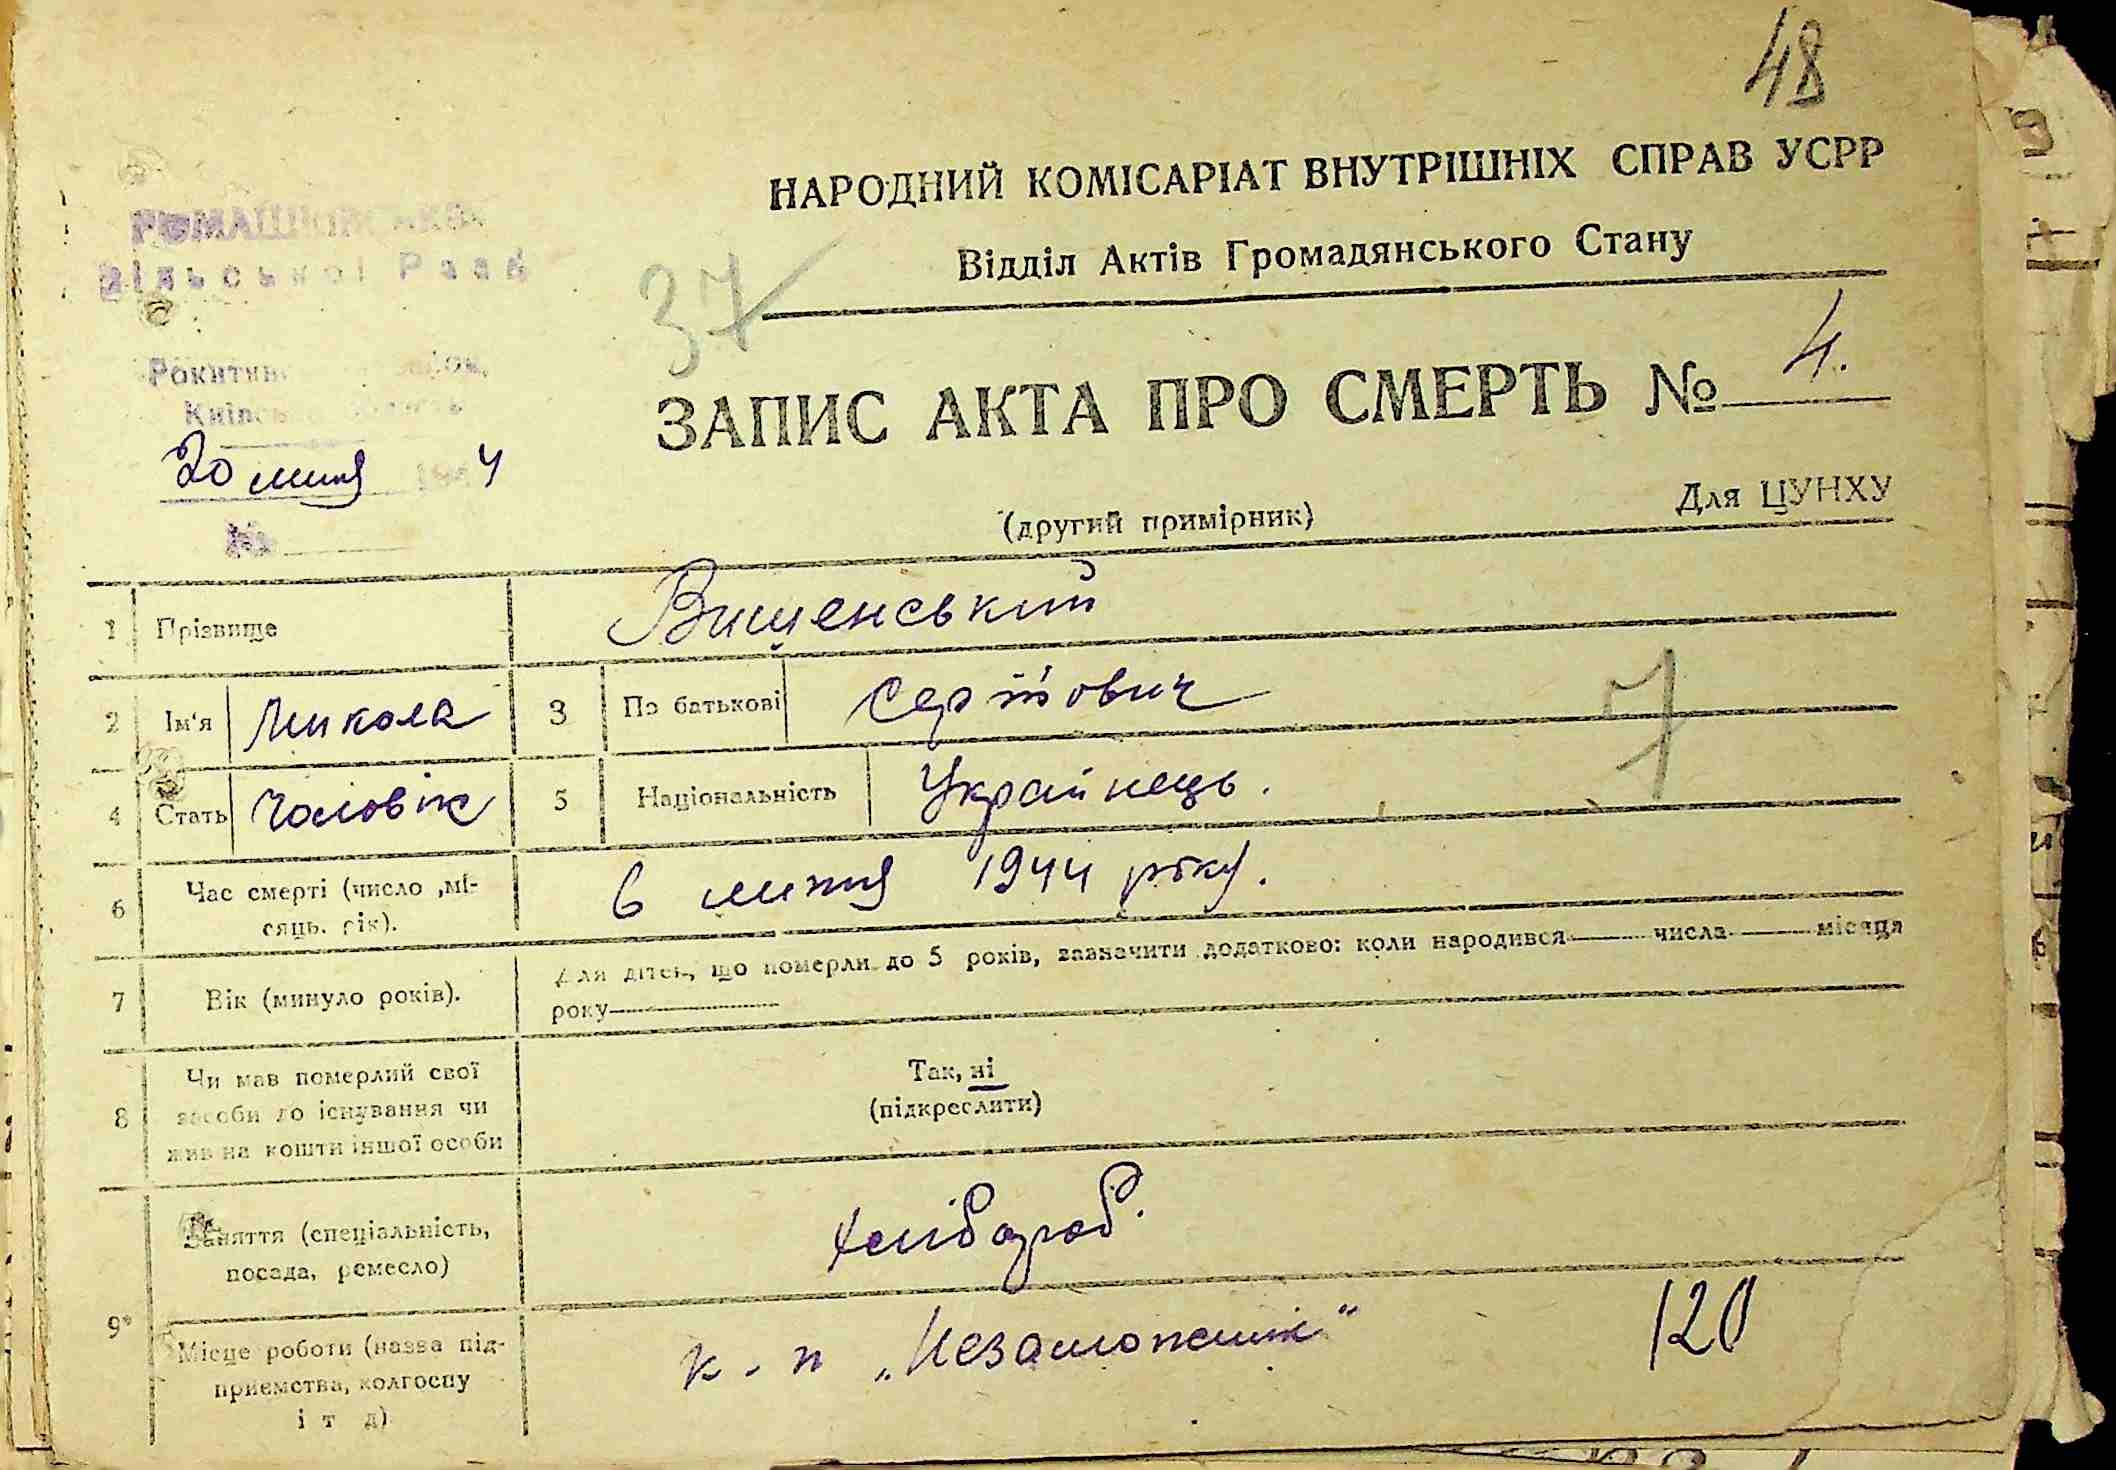 48
НАРОДНИЙ КОМІСАРІАТ ВНУТРІШНІХ СПРАВ УСРР
РОМАШКІВСЬКА
Відділ Актів Громадянського Стану
Сільської Ради
37
Рокитнян район,
Київськ область
ЗАПИС АКТА ПРО СМЕРТЬ № 4.
20 липня 1944
(другий примірник) Для ЦУНХУ
№
1 Прізвище Вишенський
2 Ім'я Микола 3 По батькові Сергійович
7
4 Стать Чоловік 5 Національність Українець.
6 Час смерті (число, мі-
сяць, рік). 6 липня 1944 року.
7 Вік (минуло років). Для дітей, що померли до 5 років, зазначити додатково: коли народився числа місяця
року
8 Чи мав померлий свої
засоби до існування чи
жив на кошти іншої особи
Так, ні
(підкреслити)
9 Заняття (спеціальність,
посада, ремесло) Хлібороб.
Місце роботи (назва під-
приємства, колгоспу
і т д)
к-п „Незаможник"
120